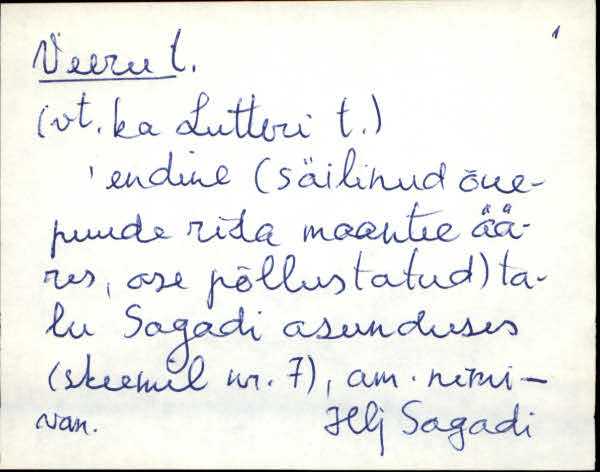 1
Veeru t.
(vt. ka Lutteri t.)
'endine (säilinud õue-
puude rida maantee ää-
res, ase põllustatud) ta-
lu Sagadi asunduses
(skeemil nr. 7), am. nimi –
van. Hlj Sagadi